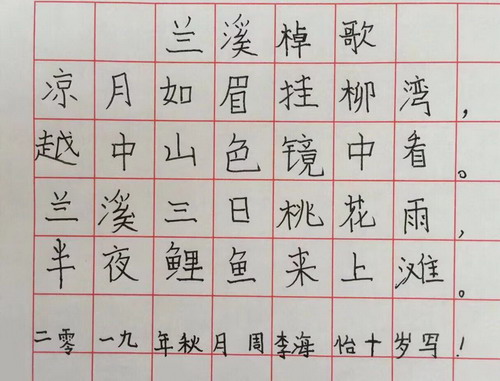 兰溪棹歌
凉月如眉挂柳湾，
越中山色镜中看。
兰溪三日桃花雨，
半夜鲤鱼来上滩。
二零一九年秋月周李海怡十岁写！